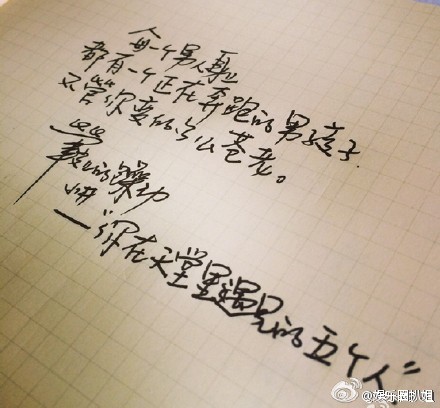 每一个男人心里
都有一个正在奔跑的男孩子
不管你变的多么苍老。
的躁动
——"你在天堂里遇见的五个人"
@娱乐圈扒姐